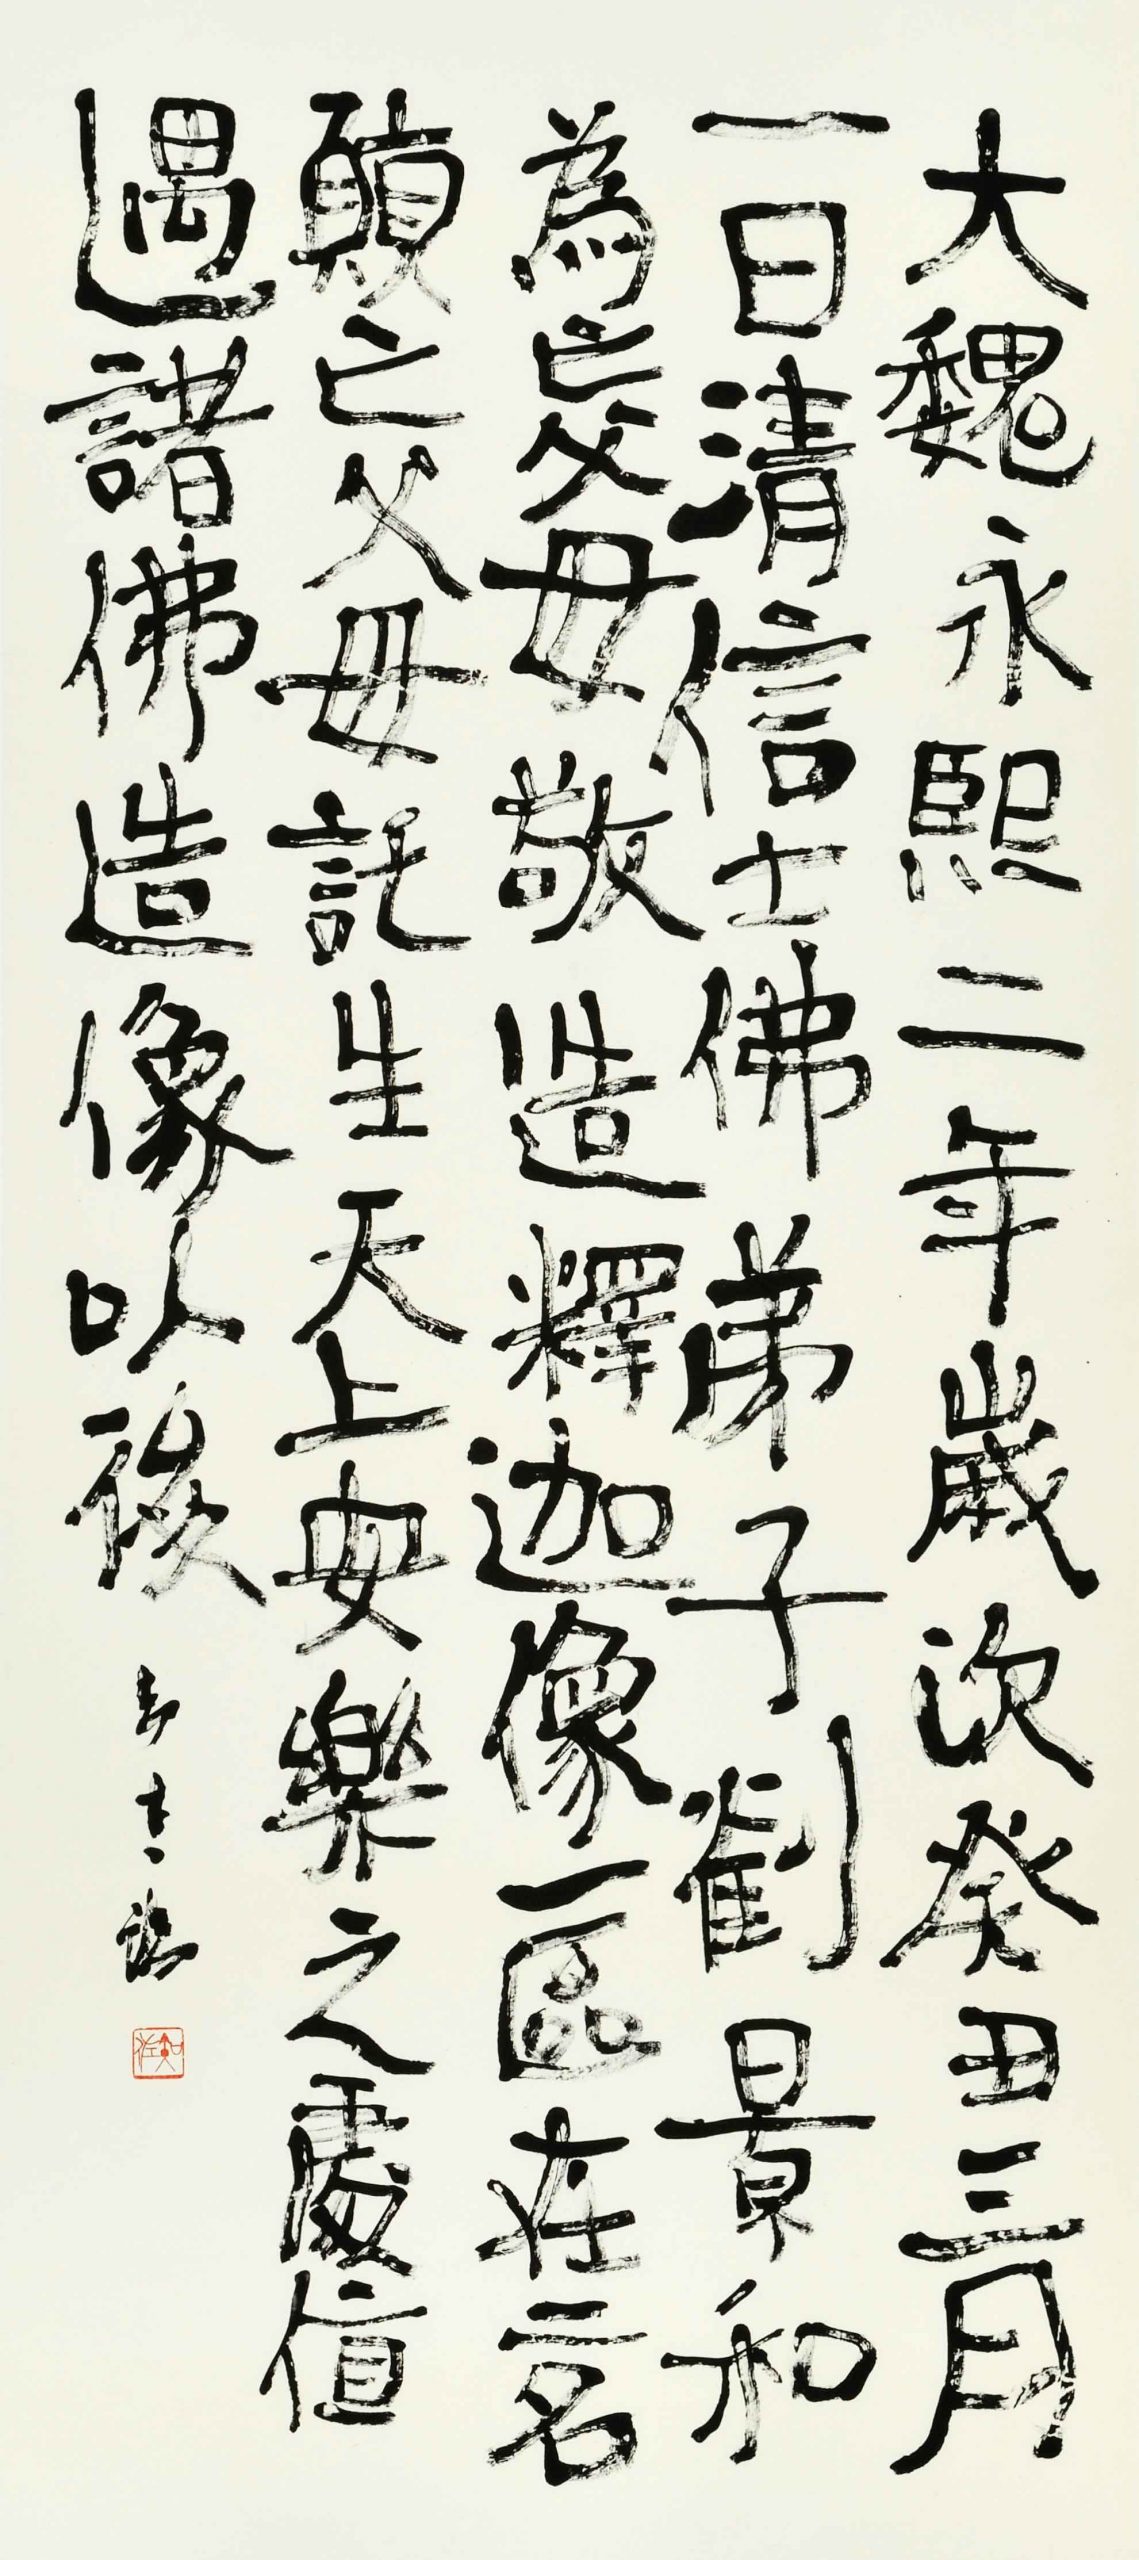 大魏永熙二年歲次癸丑三月
一日清信士佛弟子劉景和
為亡父母敬造釋迦像一區在
願亡父母託生天上安樂之處值
遇諸佛造像以後